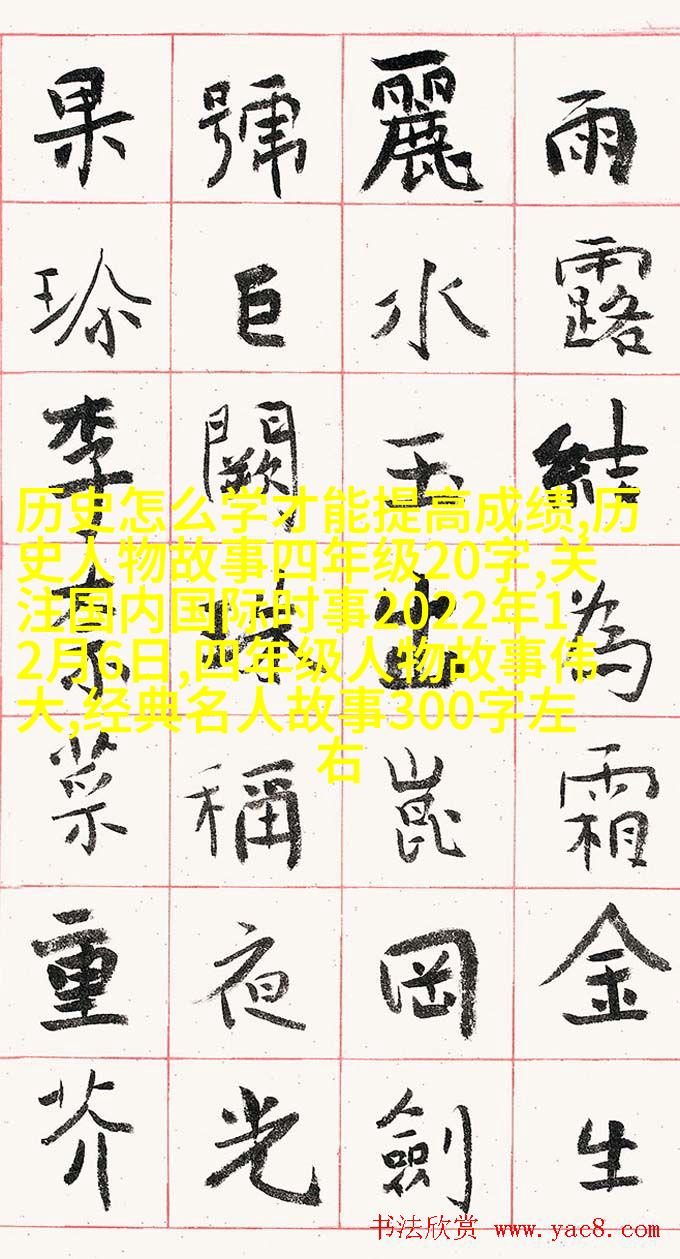 雨露結為霜金生
麗水玉出崑岡劍
號巨闕珠稱夜光
果珍李柰菜重芥
历史怎么学才能提高成绩,历
史人物故事四年级20字,关
注国内国际时事2022年1
2月6日,四年级人物故事伟
大,经典名人故事300字左
右
书法欣赏 www.yac8.com